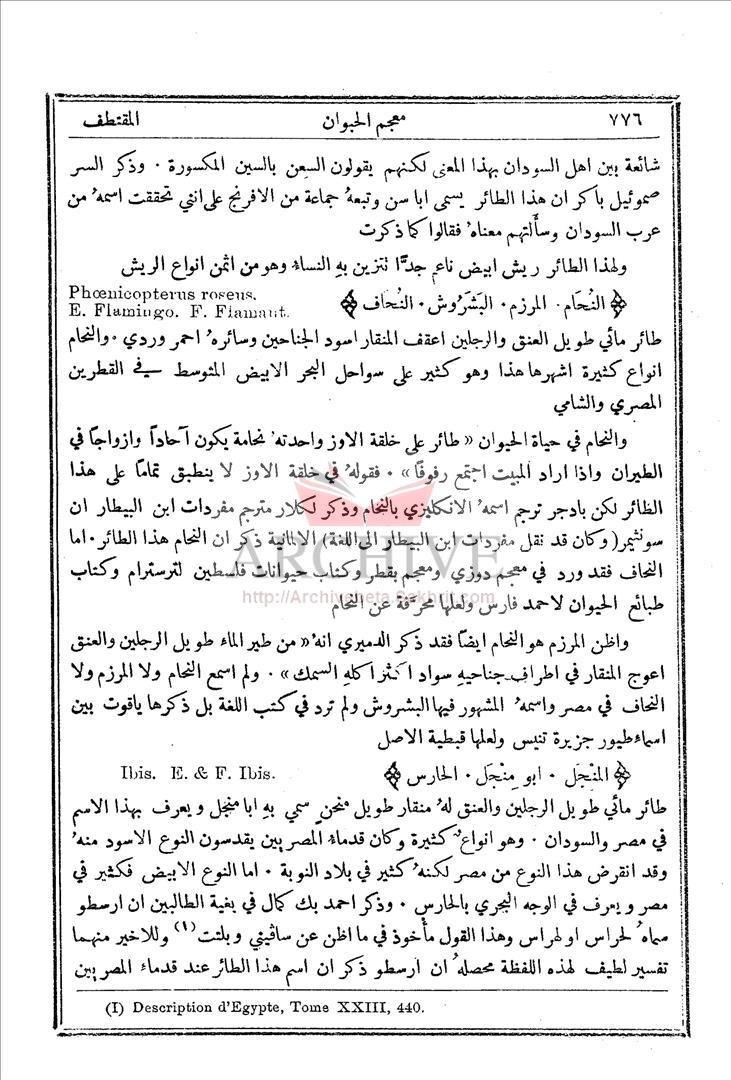 ٧٧٦ معجم الحيوان المقتطف
شائعة بين اهل السودان بهذا المعنى لكنهم يقولون السعن بالسين المكسورة ٠ وذكر السر
صموئيل باكر ان هذا الطائر يسمى ابا سن وتبعهُ جماعة من الافرنج على انني تحققت اسمهُ من
عرب السودان وسألتهم معناهُ فقالوا كما ذكرت
ولهذا الطائر ريش ابيض ناعم جدًّا تتزين بهِ النساء وهو من اثمن انواع الريش
﴿ النُحَام ٠ المرزم ٠ البَشَرُوش ٠ النُحَاف ﴾ Phœnicopterus roseus.
E. Flamingo. F. Flamant.
طائر مائي طويل العنق والرجلين اعقف المنقار اسود الجناحين وسائرهُ احمر وردي ٠ والنحام
انواع كثيرة اشهرها هذا وهو كثير على سواحل البحر الابيض المتوسط في القطرين
المصري والشامي
والنحام في حياة الحيوان « طائر على خلقة الاوز واحدتهُ نحامة يكون آحاداً وازواجاً في
الطيران واذا اراد المبيت اجتمع رفوفًا » ٠ فقولهُ في خلقة الاوز لا ينطبق تمامًا على هذا
الطائر لكن بادجر ترجم اسمهُ الانكليزي بالنحام وذكر لكلار مترجم مفردات ابن البيطار ان
سونثيمر ( وكان قد نقل مفردات ابن البيطار الى اللغة ) الالمانية ذكر ان النحام هذا الطائر ٠ اما
النحاف فقد ورد في معجم دوزي ومعجم بقطر وكتاب حيوانات فلسطين لترسترام وكتاب
طبائع الحيوان لاحمد فارس ولعلها محرَّفة عن النحام
ARCHIVE
http://Archivebeta.Sakhrit.com
واظن المرزم هو النحام ايضاً فقد ذكر الدميري انهُ « من طير الماء طويل الرجلين والعنق
اعوج المنقار في اطراف جناحيهِ سواد اكثر اكلهِ السمك » ٠ ولم اسمع النحام ولا المرزم ولا
النحاف في مصر واسمهُ المشهور فيها البشروش ولم ترد في كتب اللغة بل ذكرها ياقوت بين
اسماء طيور جزيرة تنيس ولعلها قبطية الاصل
﴿ المِنْجَل ٠ ابو مِنْجَل ٠ الحارس ﴾ Ibis. E. & F. Ibis.
طائر مائي طويل الرجلين والعنق لهُ منقار طويل منحنٍ سمي بهِ ابا منجل ويعرف بهذا الاسم
في مصر والسودان ٠ وهو انواعٌ كثيرة وكان قدماءُ المصريين يقدسون النوع الاسود منهُ
وقد انقرض هذا النوع من مصر لكنهُ كثير في بلاد النوبة ٠ اما النوع الابيض فكثير في
مصر ويعرف في الوجه البحري بالحارس ٠ وذكر احمد بك كمال في بغية الطالبين ان ارسطو
سماهُ لحراس او لهراس وهذا القول مأخوذ في ما اظن عن ساڤيني وبلنت (١) وللاخير منهما
تفسير لطيف لهذه اللفظة محصلهُ ان ارسطو ذكر ان اسم هذا الطائر عند قدماء المصريين
(I) Description d'Egypte, Tome XXIII, 440.